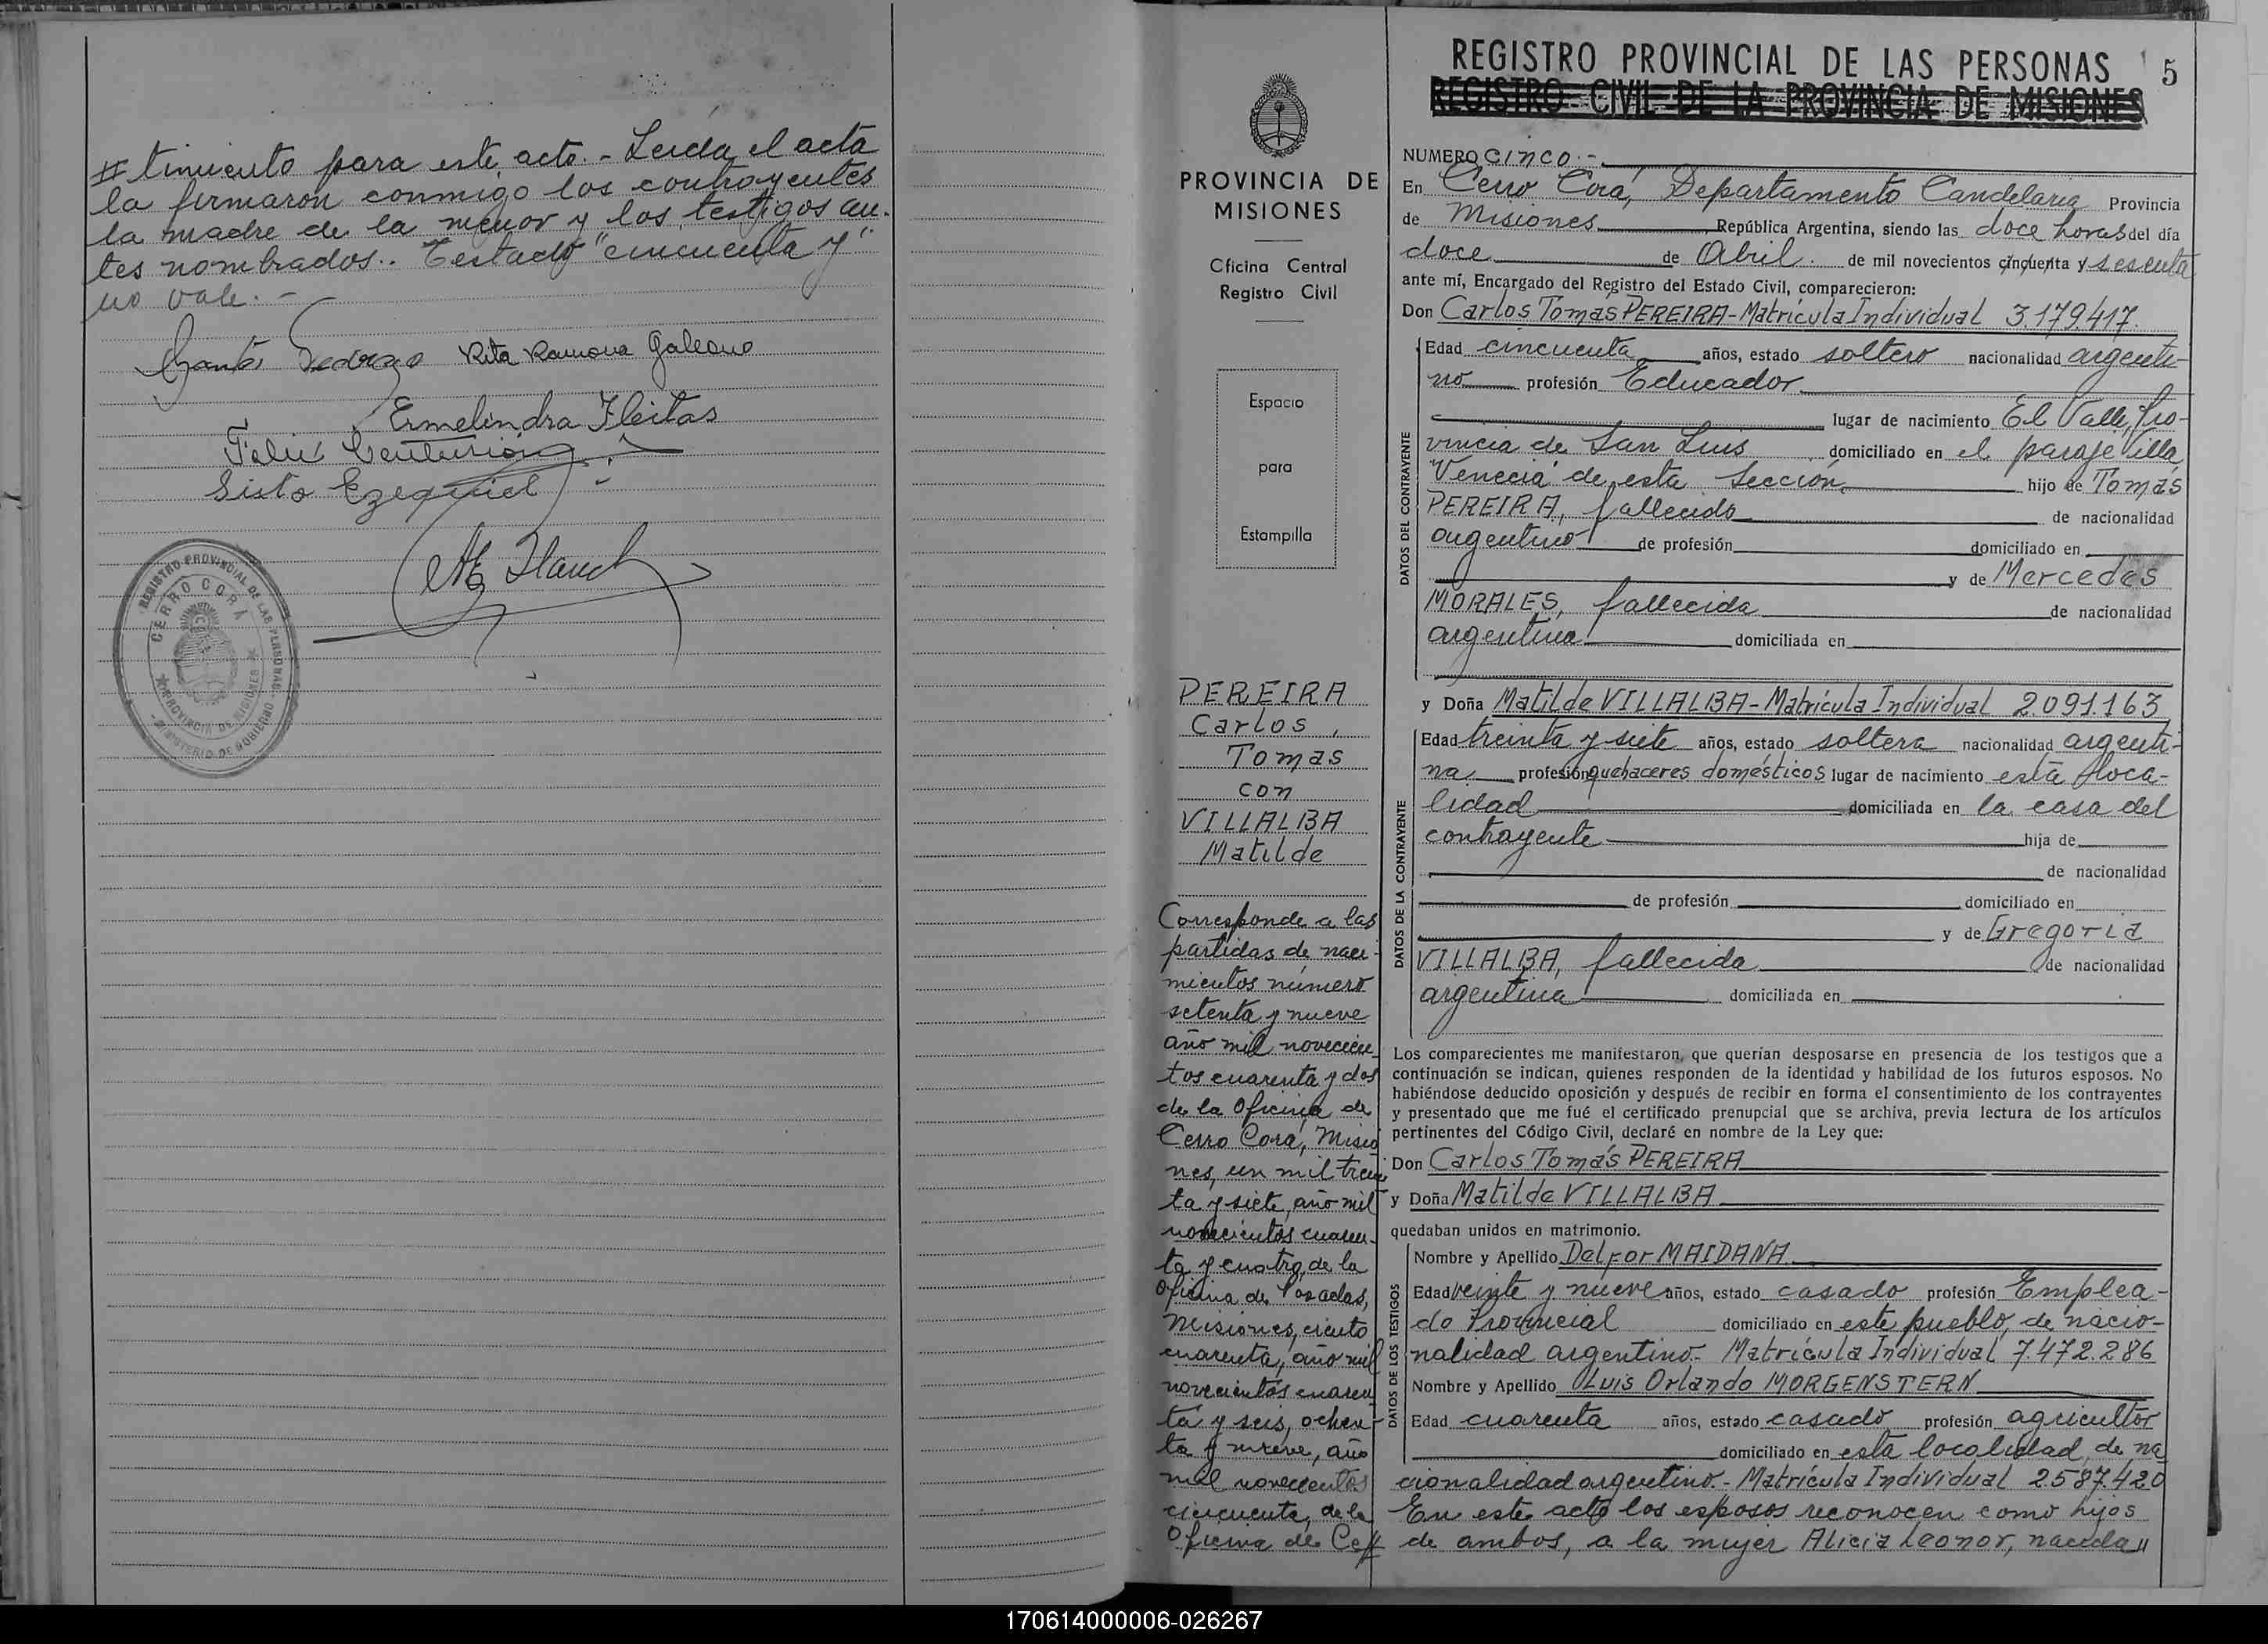 # timiento para este acto.- Leída el acta
la firmaron conmigo los contrayentes
la madre de la menor y los testigos an-
tes nombrados.. Testado "cincuenta y"
no vale.-
Rita Ramona Galeano
Ermelindra Fleitas
Felix Centurión
Sixto Ezequiel
REGISTRO PROVINCIAL DE LAS PERSONAS
CERRO CORÁ
PROVINCIA DE MISIONES
MINISTERIO DE GOBIERNO
PROVINCIA DE
MISIONES
Oficina Central
Registro Civil
Espacio
para
Estampilla
PEREIRA
Carlos,
Tomas
con
VILLALBA
Matilde
Corresponde a las
partidas de naci-
mientos número
setenta y nueve
año mil novecien-
tos cuarenta y dos
de la Oficina de
Cerro Corá, Misio
nes, un mil trein
ta y siete, año mil
novecientos cuaren-
ta y cuatro, de la
Oficina de Posadas,
Misiones, ciento
cuarenta, año mil
novecientos cuaren
ta y seis, ochen-
ta y nueve, año
mil novecientos
cincuenta, de la
Oficina de Ce#
REGISTRO PROVINCIAL DE LAS PERSONAS 5
REGISTRO CIVIL DE LA PROVINCIA DE MISIONES
NUMERO CINCO.-
En Cerro Corá, Departamento Candelaria Provincia
de Misiones República Argentina, siendo las doce horas del día
doce de Abril. de mil novecientos cincuenta y sesenta
ante mí, Encargado del Registro del Estado Civil, comparecieron:
Don Carlos Tomás PEREIRA-Matrícula Individual 3.179.417.
DATOS DEL CONTRAYENTE
Edad cincuenta años, estado soltero nacionalidad argenti-
no profesión Educador
lugar de nacimiento El Valle, Pro-
vincia de San Luis domiciliado en el paraje Villa
"Venecia" de esta Sección hijo de Tomás
PEREIRA, fallecido de nacionalidad
argentino de profesión domiciliado en
y de Mercedes
MORALES, fallecida de nacionalidad
argentina domiciliada en
y Doña Matilde VILLALBA-Matrícula Individual 2.091.163
DATOS DE LA CONTRAYENTE
Edad treinta y siete años, estado soltera nacionalidad argenti-
na profesión quehaceres domésticos lugar de nacimiento esta loca-
lidad domiciliada en la casa del
contrayente hija de
de nacionalidad
de profesión domiciliado en
y de Gregoria
VILLALBA, fallecida de nacionalidad
argentina domiciliada en
Los comparecientes me manifestaron, que querían desposarse en presencia de los testigos que a
continuación se indican, quienes responden de la identidad y habilidad de los futuros esposos. No
habiéndose deducido oposición y después de recibir en forma el consentimiento de los contrayentes
y presentado que me fué el certificado prenupcial que se archiva, previa lectura de los artículos
pertinentes del Código Civil, declaré en nombre de la Ley que:
Don Carlos Tomás PEREIRA
y Doña Matilde VILLALBA
quedaban unidos en matrimonio.
DATOS DE LOS TESTIGOS
Nombre y Apellido Delfor MAIDANA
Edad veinte y nueve años, estado casado profesión Emplea-
do Provincial domiciliado en este pueblo, de nacio-
nalidad argentino.- Matrícula Individual 7.472.286
Nombre y Apellido Luis Orlando MORGENSTERN
Edad cuarenta años, estado casado profesión agricultor
domiciliado en esta localidad, de na
cionalidad argentino.- Matrícula Individual 2.587.420
En este acto los esposos reconocen como hijos
de ambos, a la mujer Alicia Leonor, nacida"
170614000006-026267